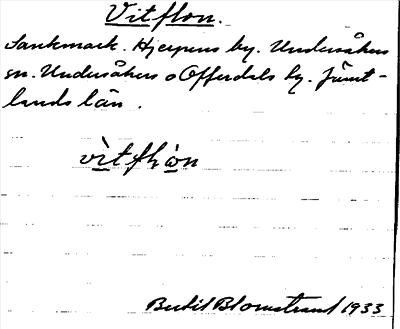 Vitflon.
Sankmark. Hjerpens by. Undersåkers
sn. Undersåkers o Offerdals tg. Jämt-
lands län.
vitflon
Bertil Blomstrand 1933